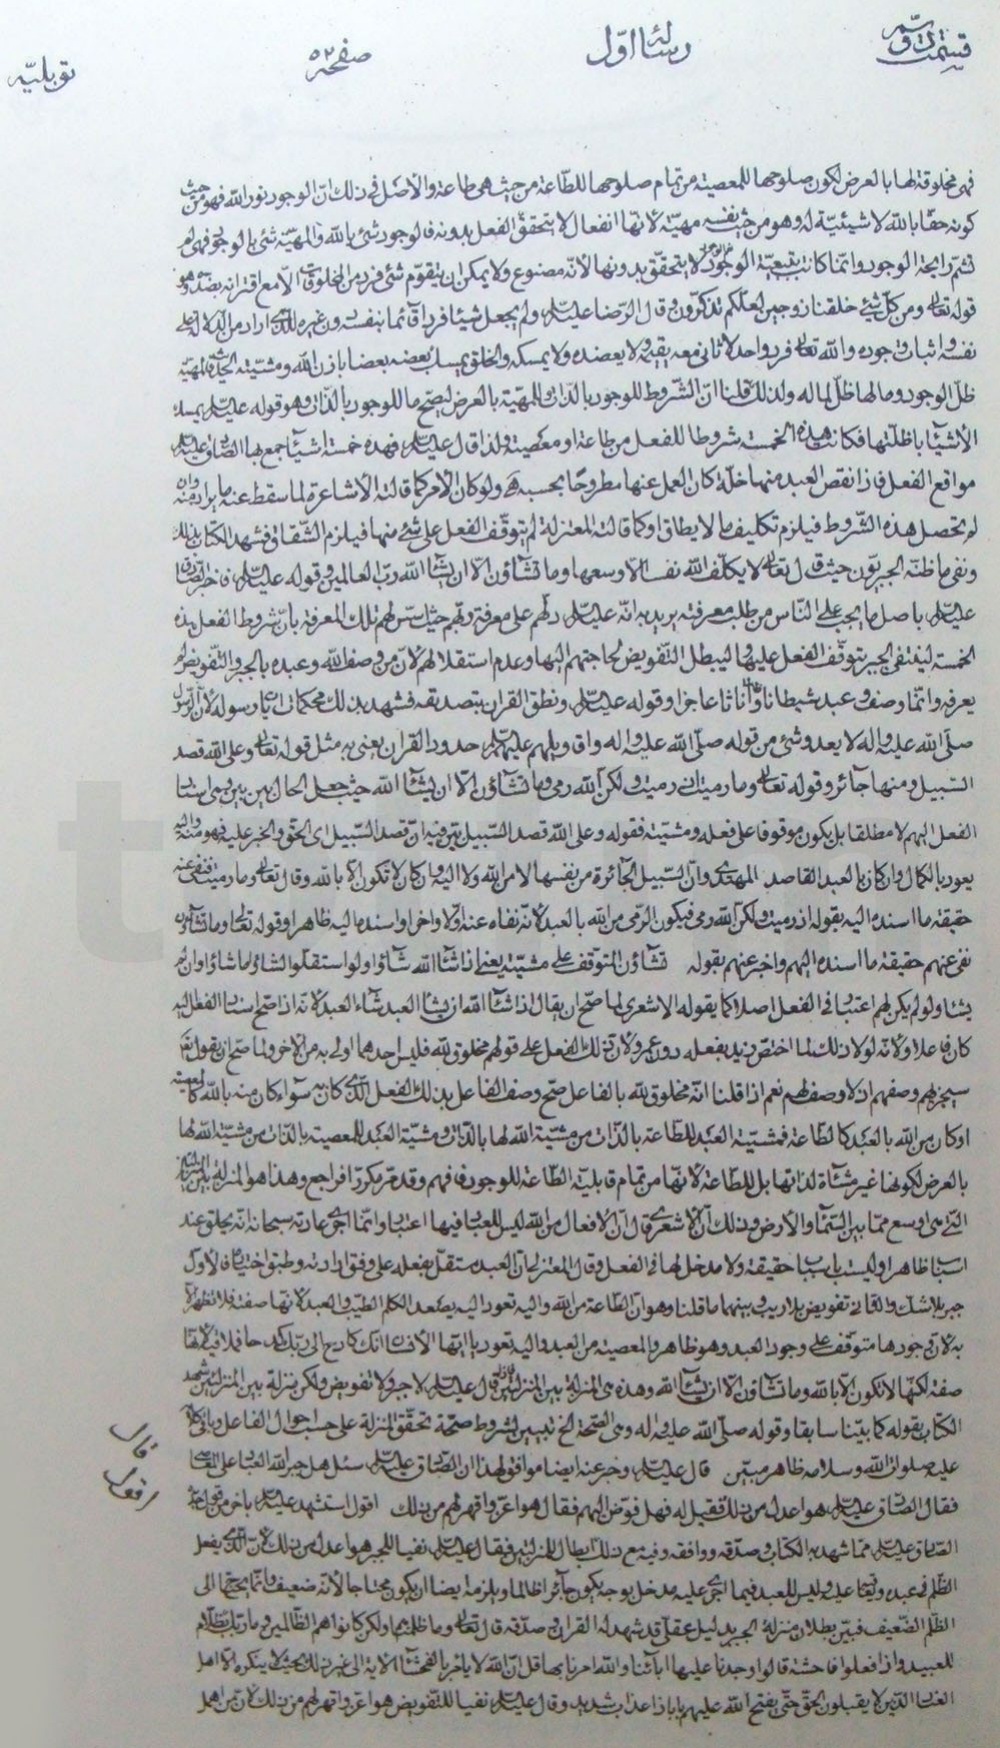 قسمت دوم رسالهٔ اوّل صفحه ۵۲ توبلیّه
فهی مخلوقة لها بالعرض لکون صلوحها للمعصیة من تمام صلوحها للطّاعة من حیث هی طاعة والاصل فی ذلك انّ الوجود نور اللّه فهو من حیث
کونه حقّا باللّه لا شیئیّة له وهو من حیث نفسه مهیّة لانّها انفعال لا یتحقّق الفعل بدونه فالوجود شیء باللّه والمهیّة شیء بالوجود فهی لم
تشمّ رایحة الوجود وانّما کانت بتبعیّة الوجود لا یتحقّق بدونها لانّه مصنوع ولا یمکن ان یتقوّم شیء فرد من المخلوقات الّا مع اقترانه بضدّه وهو
قوله تعالی ومن کلّ شیء خلقنا زوجین لعلّکم تذکّرون وقال الرّضا علیه السّلم ولم یجعل شیئا فردا قائما بنفسه دون غیره للّذی اراد من الدّلالة علی
نفسه واثبات وجوده واللّه تعالی فرد واحد لا ثانی معه یقیمه ولا یعضده ولا یمسکه والخلق یمسك بعضه بعضا باذن اللّه ومشیّته
ظلّ الوجود وما لها ظلّ لما له ولذلك قلنا انّ الشّروط للوجود بالذّات وللمهیّة بالعرض لیصحّ ما للوجود بالذّات وهو قوله علیه السّلم یمسك
الاشیاء باظلّتها فکانت هذه الخمسة شروطا للفعل من طاعة او معصیة ولذا قال علیه السّلم فهذه خمسة اشیاء جمع بها الصّادق علیه السّلم
جوامع الفعل فاذا نقص العبد منها خلّة کان العمل عنها مطروحا بحسبه ولو کان الامر کما قالته الاشاعرة لما سقط عنه ما یراد منه وان
لم تحصل هذه الشّروط فیلزم تکلیف ما لا یطاق او کما قالته المعتزلة لم یتوقّف الفعل علی شیء منها فیلزم الشّقاق فشهد الکتاب بذلك
ونفی ما ظنّه الجبریّون حیث قال تعالی لا یکلّف اللّه نفسا الّا وسعها وما تشاؤن الّا ان یشاء اللّه ربّ العالمین وقوله علیه السّلم فاخبر الصّادق
علیه السّلم باصل ما یجب علی النّاس من طلب معرفته یرید به انّه علیه السّلم دلّهم علی معرفة ربّهم حیث اسّس لهم تلك المعرفة بانّ شروط الفعل هذه
الخمسة لینتفی الجبر بتوقّف الفعل علیها ولیبطل التّفویض لحاجتهم الیها وعدم استقلالهم لانّ من وصف اللّه وعبده بالجبر والتّفویض لم
یعرفه وانّما وصف وعبد شیطانا واناثا عاجزا وقوله علیه السّلم ونطق القران بتصدیقه فشهد بذلك محکمات ایات رسوله لانّ الرّسول
صلّی اللّه علیه واله لا یعدو شیء من قوله صلّی اللّه علیه واله واقاویلهم علیهم السّلم حدود القران یعنی به مثل قوله تعالی وعلی اللّه قصد
السّبیل ومنها جائر وقوله تعالی وما رمیت اذ رمیت ولکنّ اللّه رمی وما تشاؤن الّا ان یشاء اللّه حیث جعل الحال بین بین
الفعل الیهم لا مطلقا بل یکون موقوفا علی فعله ومشیّته فقوله وعلی اللّه قصد السّبیل بیّن فیه انّ قصد السّبیل ای الحقّ والخیر علیه فهو منه والیه
یعود بالکمال وان کان بالعبد القاصد المهتدی وانّ السّبیل الجائرة من نفسها لا من اللّه ولا الیه وان کان لا تکون الّا باللّه وقال تعالی وما رمیت فنفی عنه
حقیقة ما اسنده الیه بقوله اذ رمیت ولکنّ اللّه رمی فیکون الرّمی من اللّه بالعبد لانّه نفاه عنه اوّلا واخرا واسنده الیه ظاهرا وقوله تعالی وما تشاؤن
نفی عنهم حقیقة ما اسنده الیهم واخبر عنهم بقوله تشاؤن المتوقّف علی مشیّته یعنی اذا شاء اللّه شاؤا ولو استقلّوا لشاؤا ما شاؤا وان لم
یشاء ولو لم یکن لهم اعتبار فی الفعل اصلا کما یقوله الاشعری لما صحّ ان یقال اذا شاء اللّه ان یشاء العبد شاء العبد لانّه اذا صحّ اسناد الفعل الیه
کان فاعلا ولانّه لولا ذلك لما اختصّ زید بفعله دون عمرو لانّ ذلك الفعل علی قولهم مخلوق للّه فلیس احدهما اولی به من الاخر ولما صحّ ان یقول تعالی
سیجزیهم وصفهم اذ لا وصف لهم نعم اذا قلنا انّه مخلوق للّه بالفاعل صحّ وصف الفاعل بذلك الفعل الّذی کان به سواء کان منه باللّه کالمعصیة
او کان من اللّه بالعبد کالطّاعة فمشیّة العبد للطّاعة بالذّات من مشیّة اللّه لها بالذّات ومشیّة العبد للمعصیة بالذّات من مشیّة اللّه لها
بالعرض لکونها غیر مشاءة لذاتها بل للطّاعة لانّها من تمام قابلیّة الطّاعة للوجود فافهم وقد مرّ مکرّرا فراجع وهذا هو المنزلة بین المنزلتین
الّتی هی اوسع ممّا بین السّماء والارض وذلك انّ الاشعری قال انّ الافعال من اللّه لیس للعباد فیها اعتبار وانّما اجری عادته سبحانه انّه یخلق عند
اسباب ظاهرا ولیست باسباب حقیقة ولا مدخل لها فی الفعل وقال المعتزلی انّ العبد مستقلّ بفعله علی وفق ارادته وطبق اختیاره فالاوّل
جبر بلا شكّ والثّانی تفویض بلا ریب وبینهما ما قلنا وهو انّ الطّاعة من اللّه والیه تعود الیه یصعد الکلم الطّیّب وبالعبد لانّها صفته فلا تظهر الّا
به لانّ وجودها متوقّف علی وجود العبد وهو ظاهر والمعصیة من العبد والیه تعود یا ایّها الانسان انّك کادح الی ربّك کدحا فملاقیه لانّها
صفته لکنّها لا تکون الّا باللّه وما تشاؤن الّا ان یشاء اللّه وهذه هی المنزلة بین المنزلتین قال علیه السّلم لا جبر ولا تفویض ولکن منزلة بین المنزلتین شهد
الکتاب بقوله کما بیّنا سابقا وقوله صلّی اللّه علیه واله وهی الصّحّة الخ تبیین لشروط صحّة تحقّق المنزلة علی حسب احوال الفاعل وباقی کلامه
علیه صلوات اللّه وسلامه ظاهر مبیّن قال علیه السّلم وخبر عنه ایضا موافق لهذا انّ الصّادق علیه السّلم سئل هل جبر اللّه العباد علی المعاصی
فقال الصّادق علیه السّلم هو اعدل من ذلك فقیل له فهل فوّض الیهم فقال هو اعزّ واقهر لهم من ذلك اقول استشهد علیه السّلم باخر من قول جدّه
الصّادق علیه السّلم ممّا شهد به الکتاب وصدّقه ووافقه وفیه مع ذلك ابطال المنزلتین فقال علیه السّلم نفیا للجبر هو اعدل من ذلك لانّ الّذی یفعل
الظّلم فی عبده ویعاقبه علیه ولیس للعبد فیما اجری علیه مدخل بوجه یکون جائرا ظالما ویلزمه ایضا ان یکون محتاجا لانّه ضعیف وانّما یحتاج الی
الظّلم الضّعیف فبیّن بطلان منزلة الجبر بدلیل عقلیّ قد شهد له القران وصدّقه قال تعالی وما ظلمناهم ولکن کانوا هم الظّالمین وما ربّك بظلّام
للعبید واذا فعلوا فاحشة قالوا وجدنا علیها اباءنا واللّه امرنا بها قل انّ اللّه لا یامر بالفحشاء الایة الی غیر ذلك بحیث لا ینکره الّا اهل
العناد الّذین لا یقبلون الحقّ حتّی یفتح اللّه علیهم بابا ذا عذاب شدید وقال علیه السّلم نفیا للتّفویض هو اعزّ واقهر لهم من ذلك لانّ من اهمل
قال
اقول